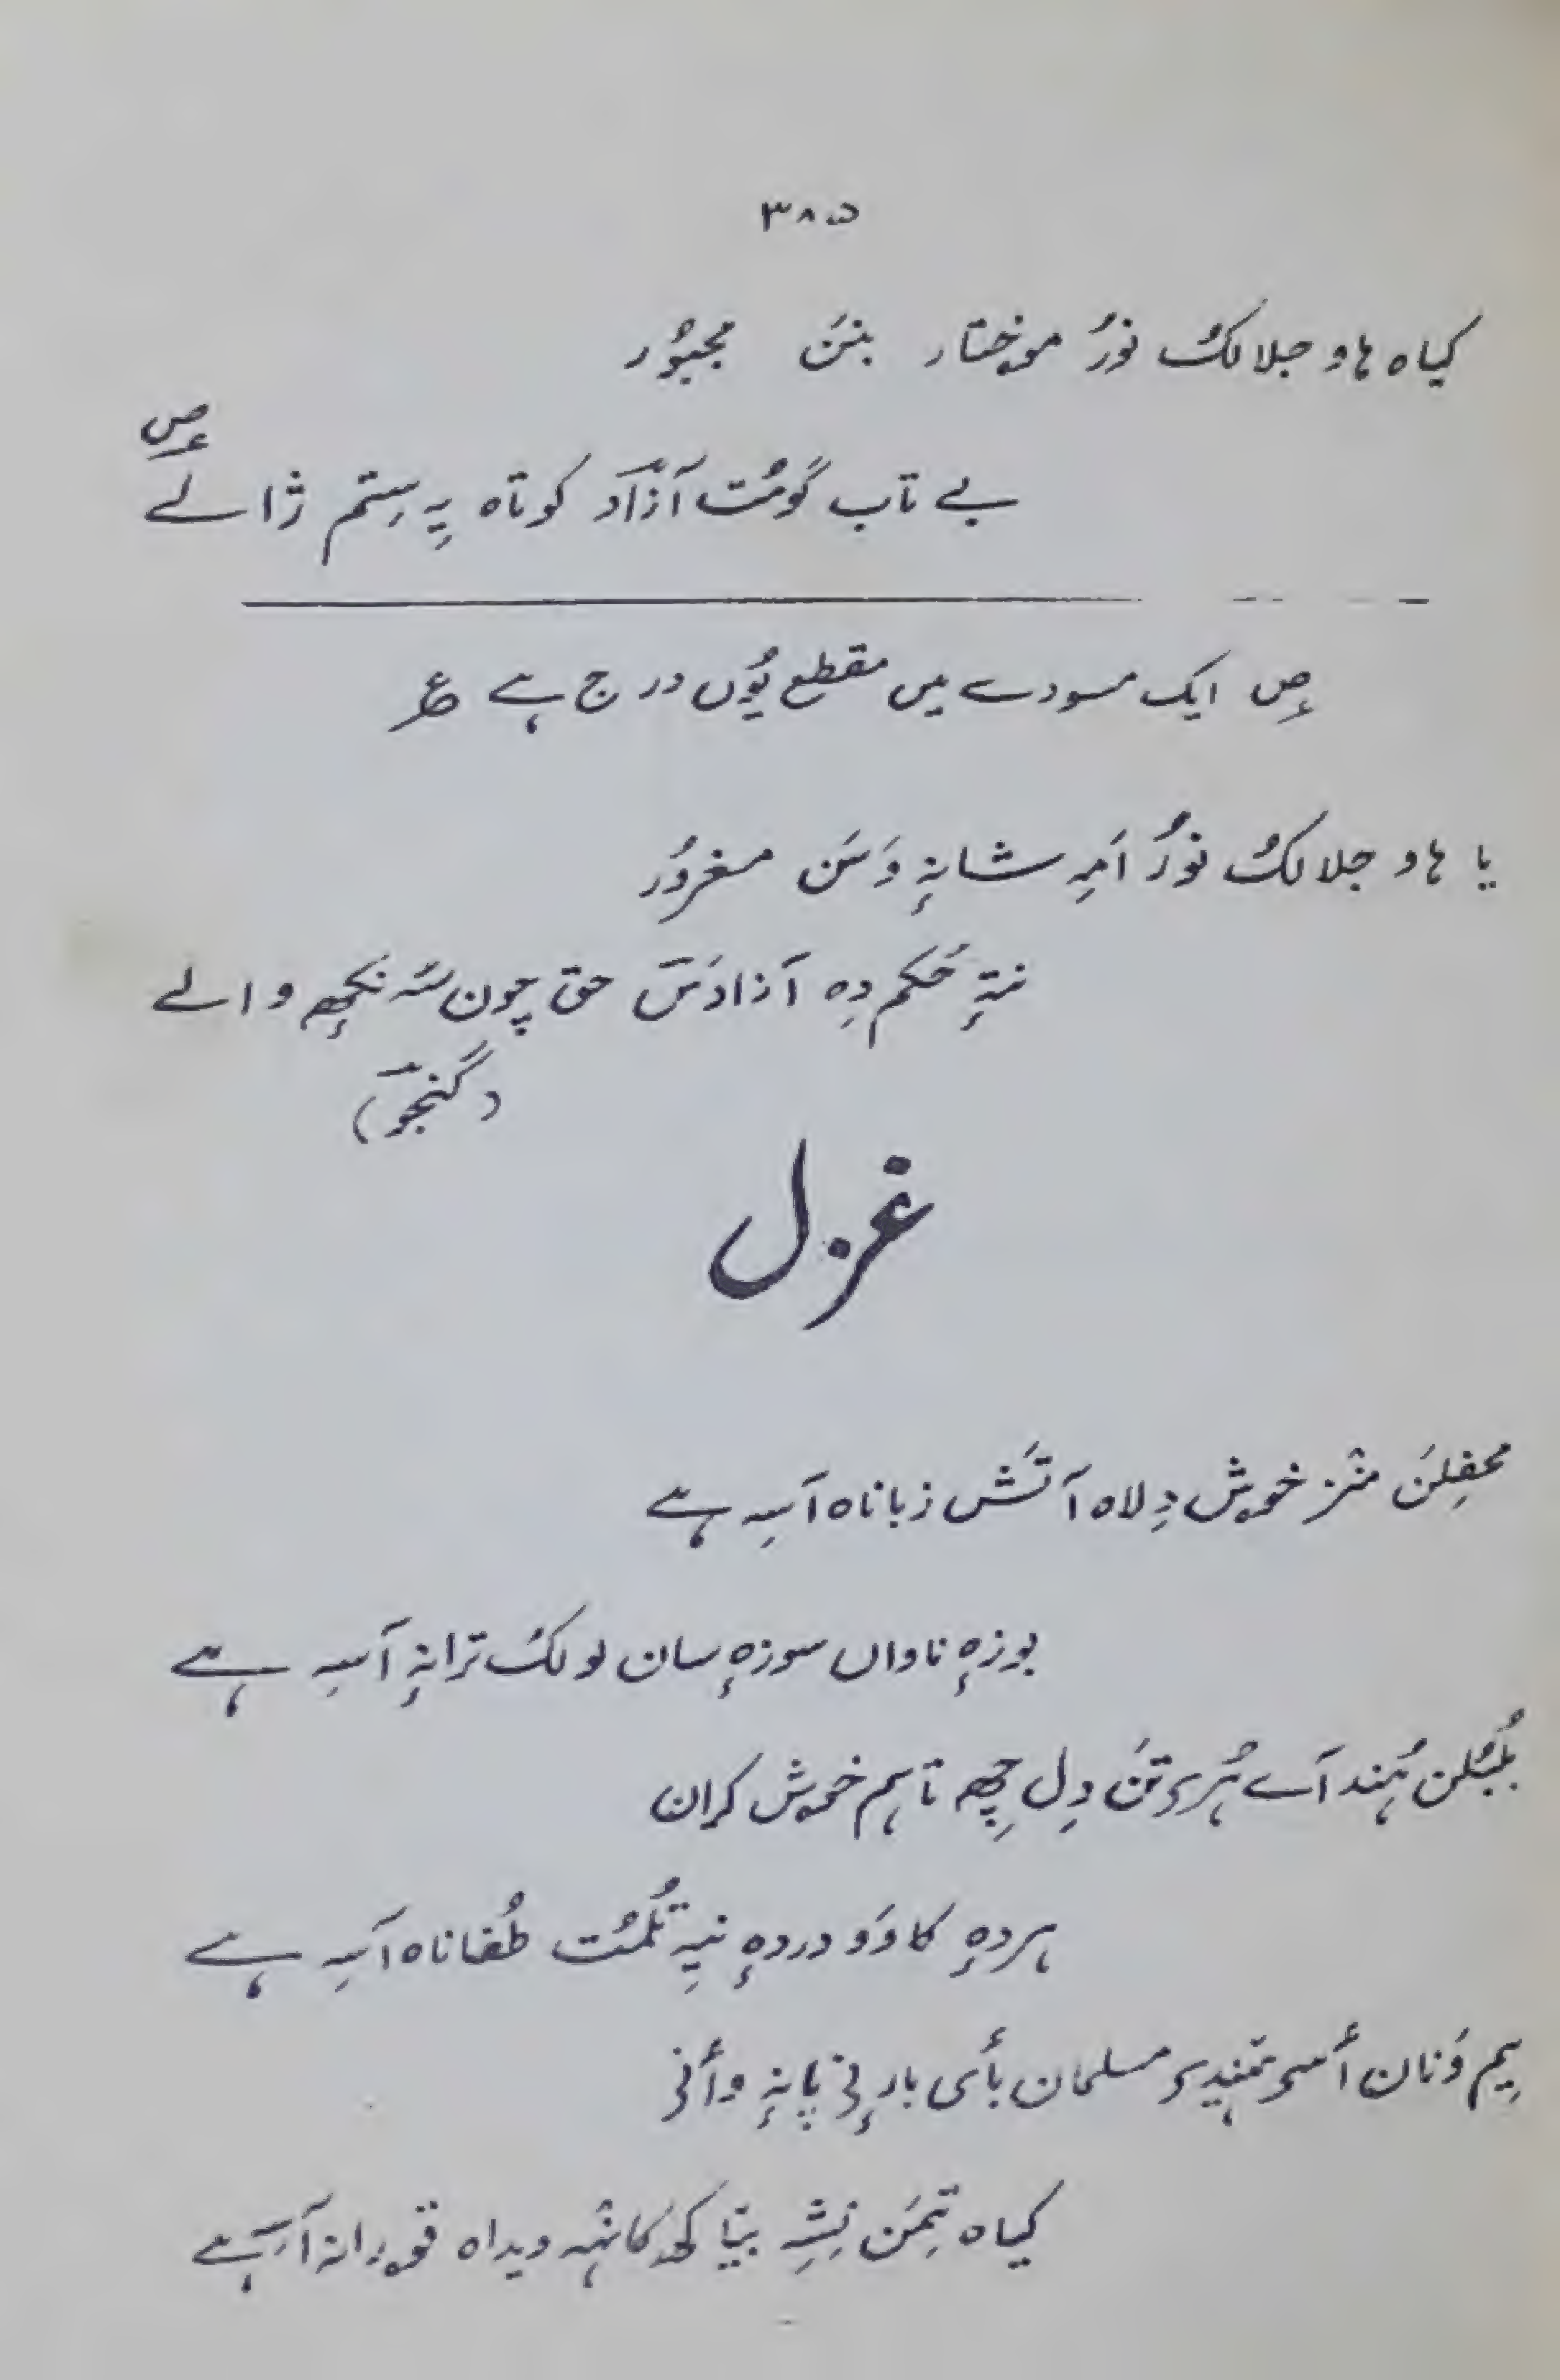 ۳۸۵
کیاہ ہاو جلالکُ نوٗرُ موختار بننَ مجبوٗر
بے تاب گومُت آزاد کوتاہ یہِ ستم ژالے
؏ص
؏ص ایک مسودے میں مقطع یُوں درج ہے ؏
یا ہاو جلالکُ نوٗرُ امہِ شانہٕ وَسَن مغروُر
نتہٕ حُکم دِہ آزادَس حق چون سُہ نکھِ والے
(گنجو)
غزل
محفِلنَ منٛز خوش دِلاہ آتَش زباناہ آسہِ ہے
بوزہٕ ناواں سوزہٕ سان لولکُ ترانہٕ آسہِ ہے
بُلبُلن ہُند آے ہُری تنَ دِل چھِ تاہم خوش کران
ہردہٕ کاوَو دردہٕ نیہِ تُلمُت طُفاناہ آسہِ ہے
یِم وَنان أسی ہِندی مسلمان بأی بارنی پانہٕ وأنی
کیاہ تِمَن نِشہِ بیّا کھ کانٛہہ ویداہ قورانہ آسہِ ہے